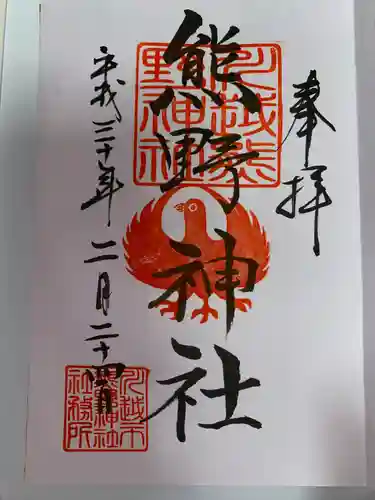 奉拝
熊野神社
平成三十年二月二十四日
川越熊野神社
川越市熊野神社社務所